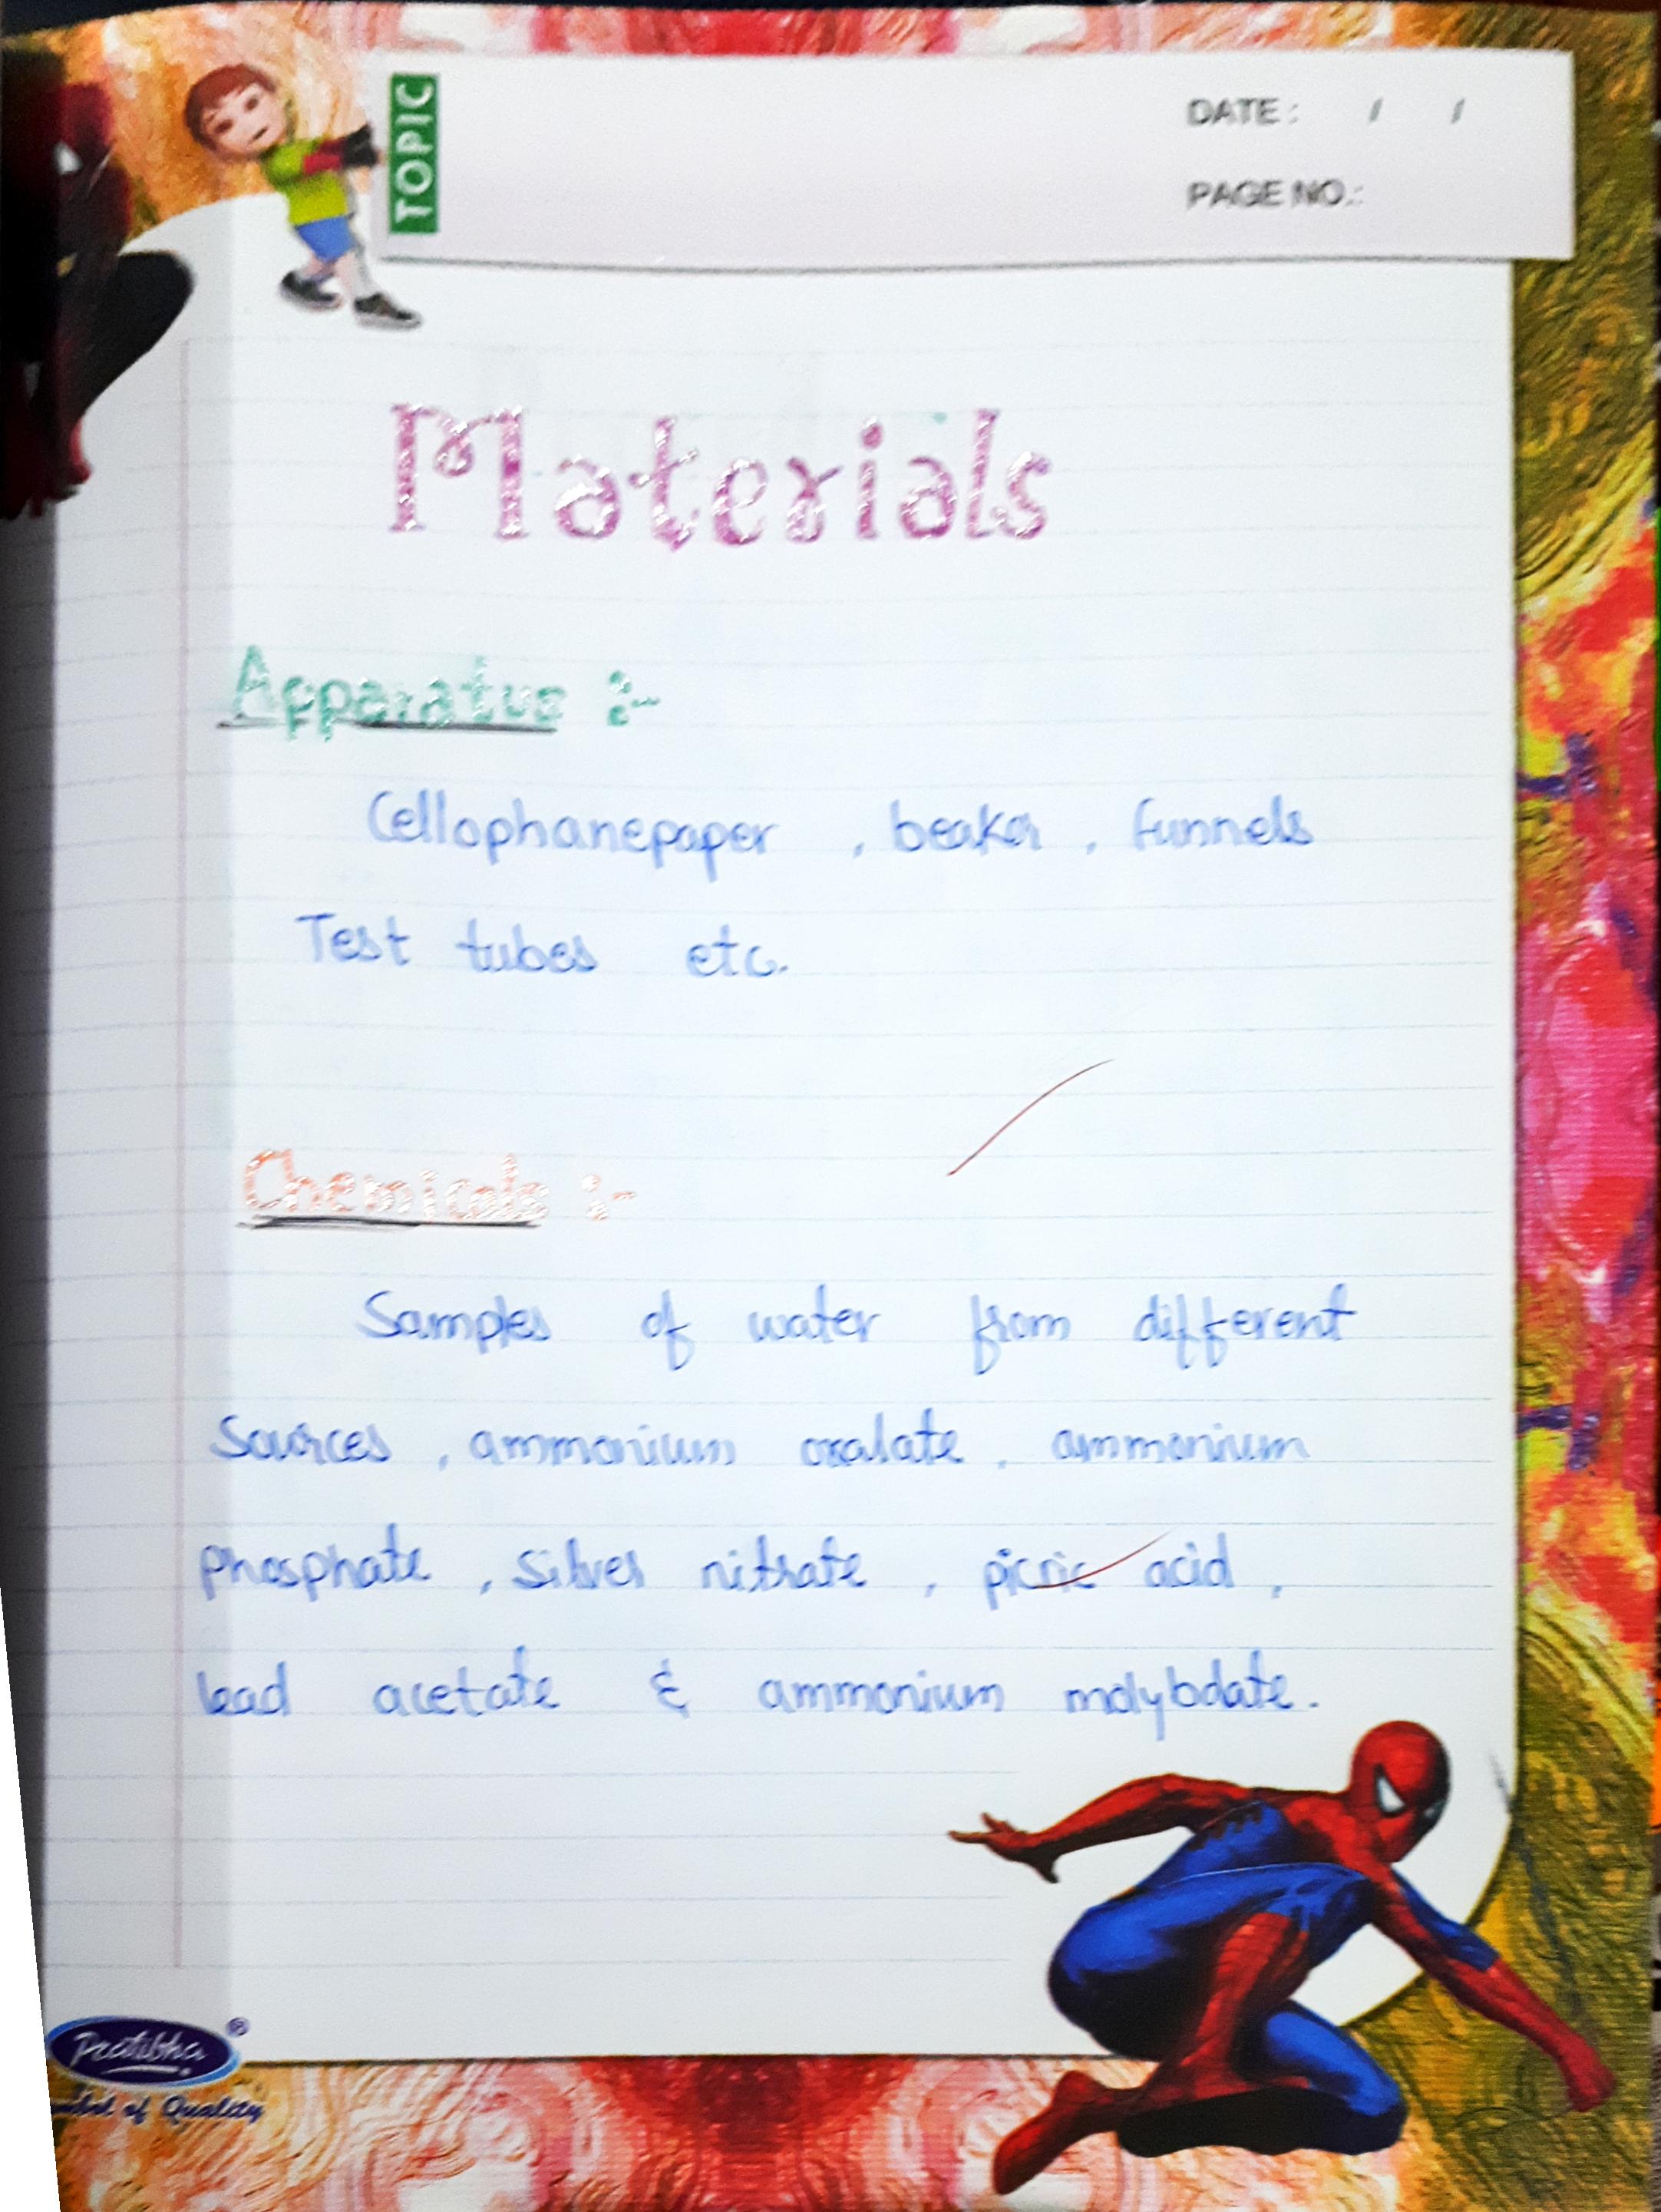 TOPIC
DATE : / /
PAGE NO.:
Materials
Apparatus :-
Cellophanepaper , beaker , funnels
Test tubes etc.
Chemicals :-
Samples of water from different
Sources , ammonium oxalate , ammonium
phosphate , silver nitrate , picric acid ,
lead acetate & ammonium molybdate.
Pratibha ®
of Quality